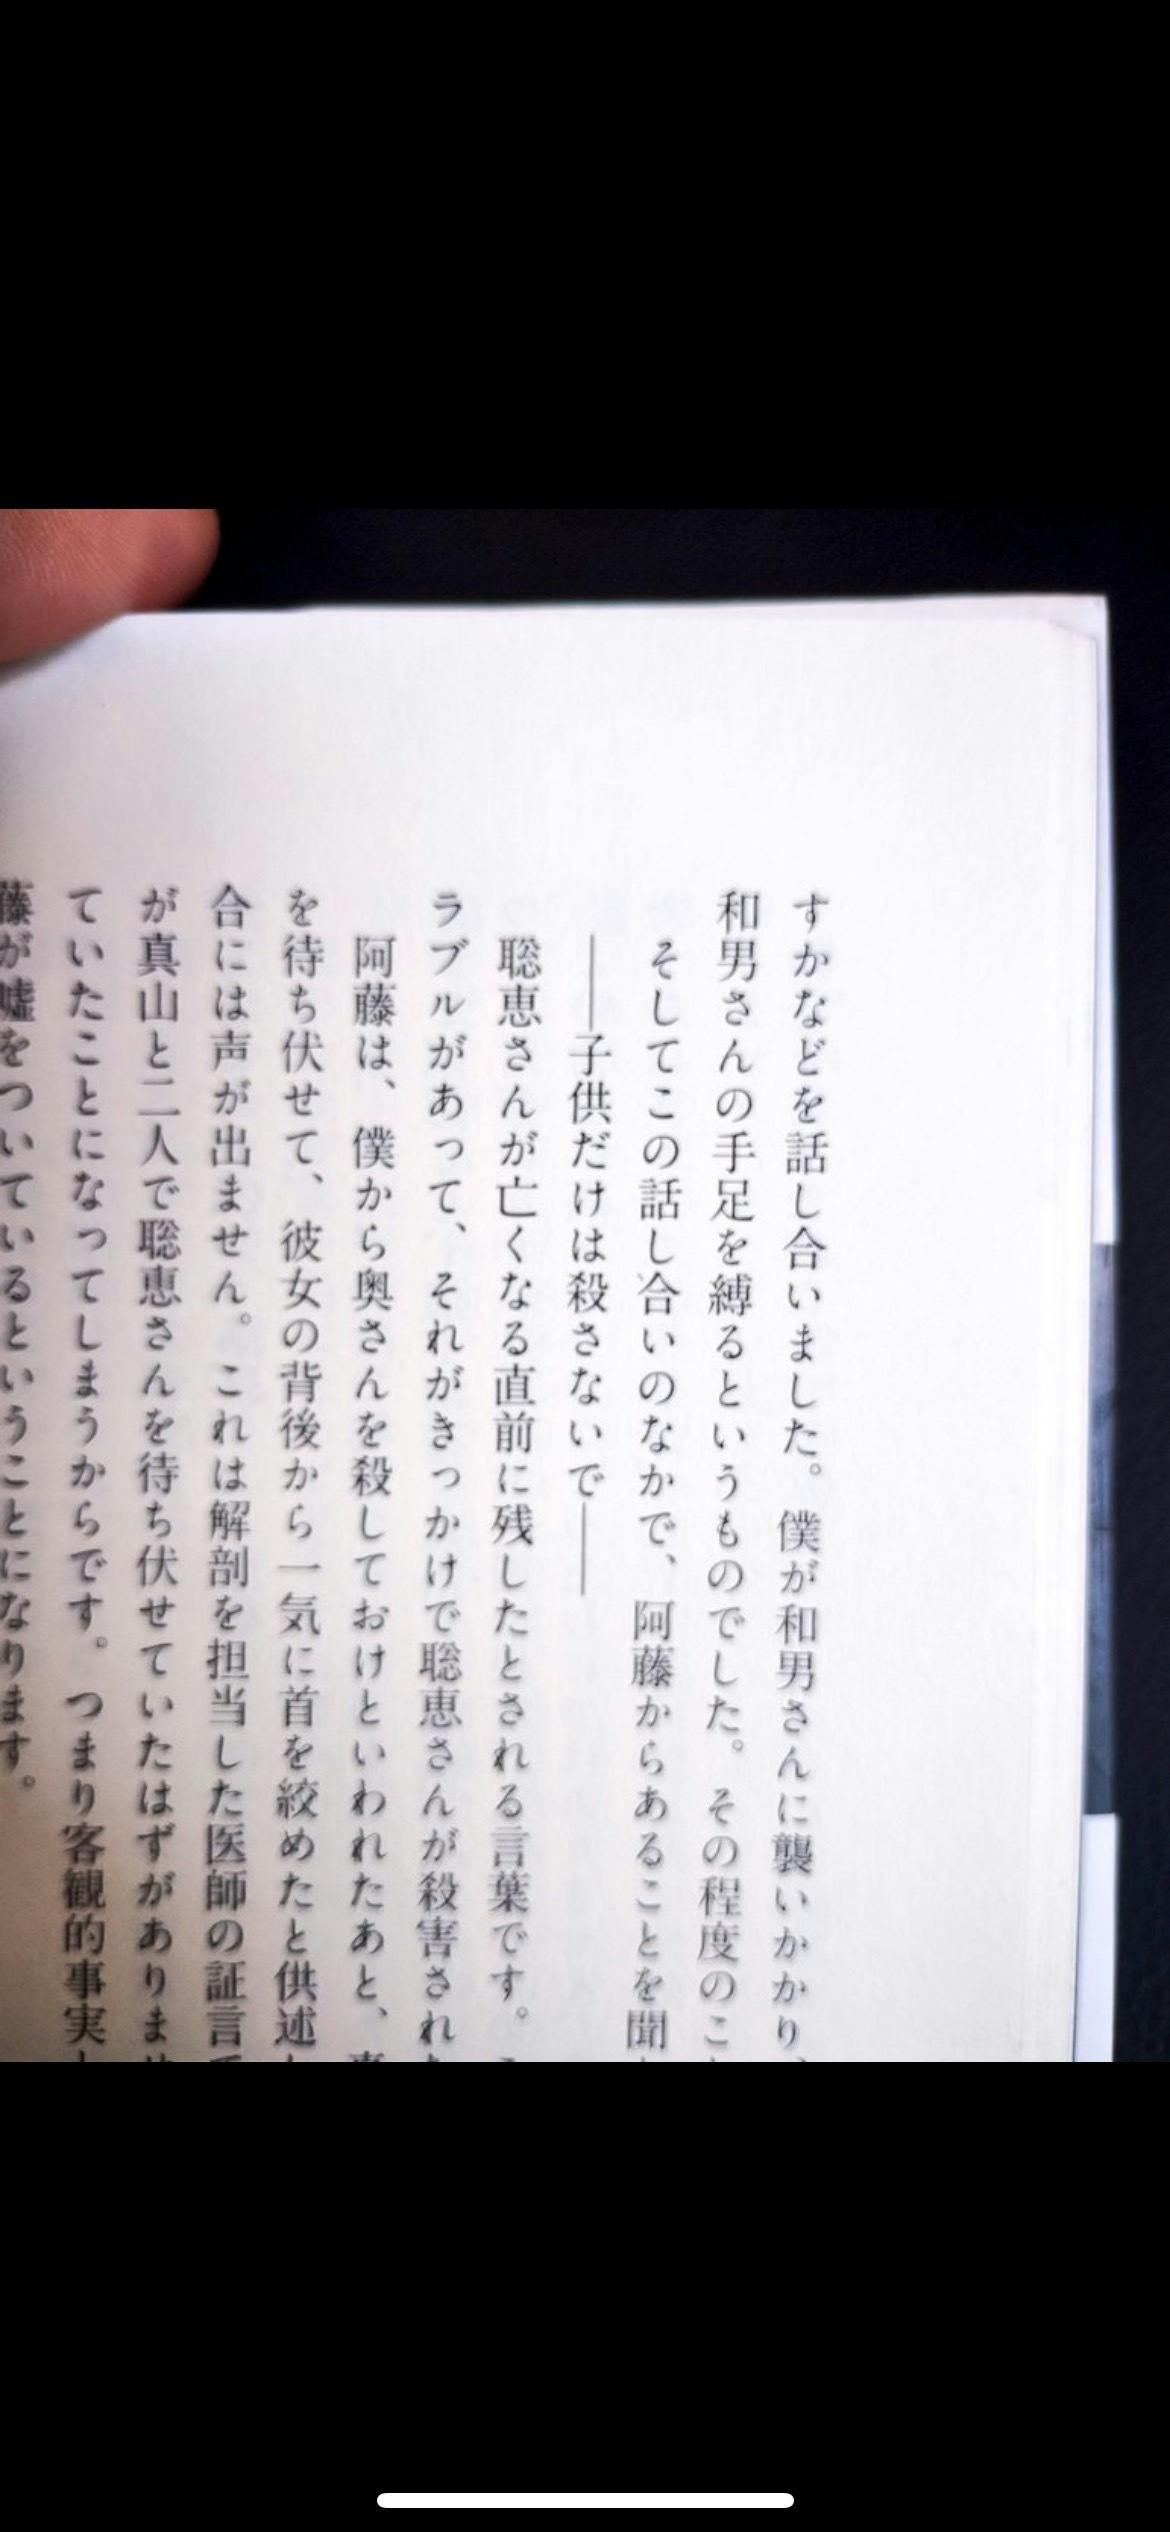 すかなどを話し合いました。僕が和男さんに襲いかかり、
和男さんの手足を縛るというものでした。その程度のこ
そしてこの話し合いのなかで、阿藤からあることを聞
――子供だけは殺さないで――
聡恵さんが亡くなる直前に残したとされる言葉です。
ラブルがあって、それがきっかけで聡恵さんが殺害され
阿藤は、僕から奥さんを殺しておけといわれたあと、
を待ち伏せて、彼女の背後から一気に首を絞めたと供述
合には声が出ません。これは解剖を担当した医師の証言
が真山と二人で聡恵さんを待ち伏せていたはずがありま
ていたことになってしまうからです。つまり客観的事実
藤が嘘をついているということになります。